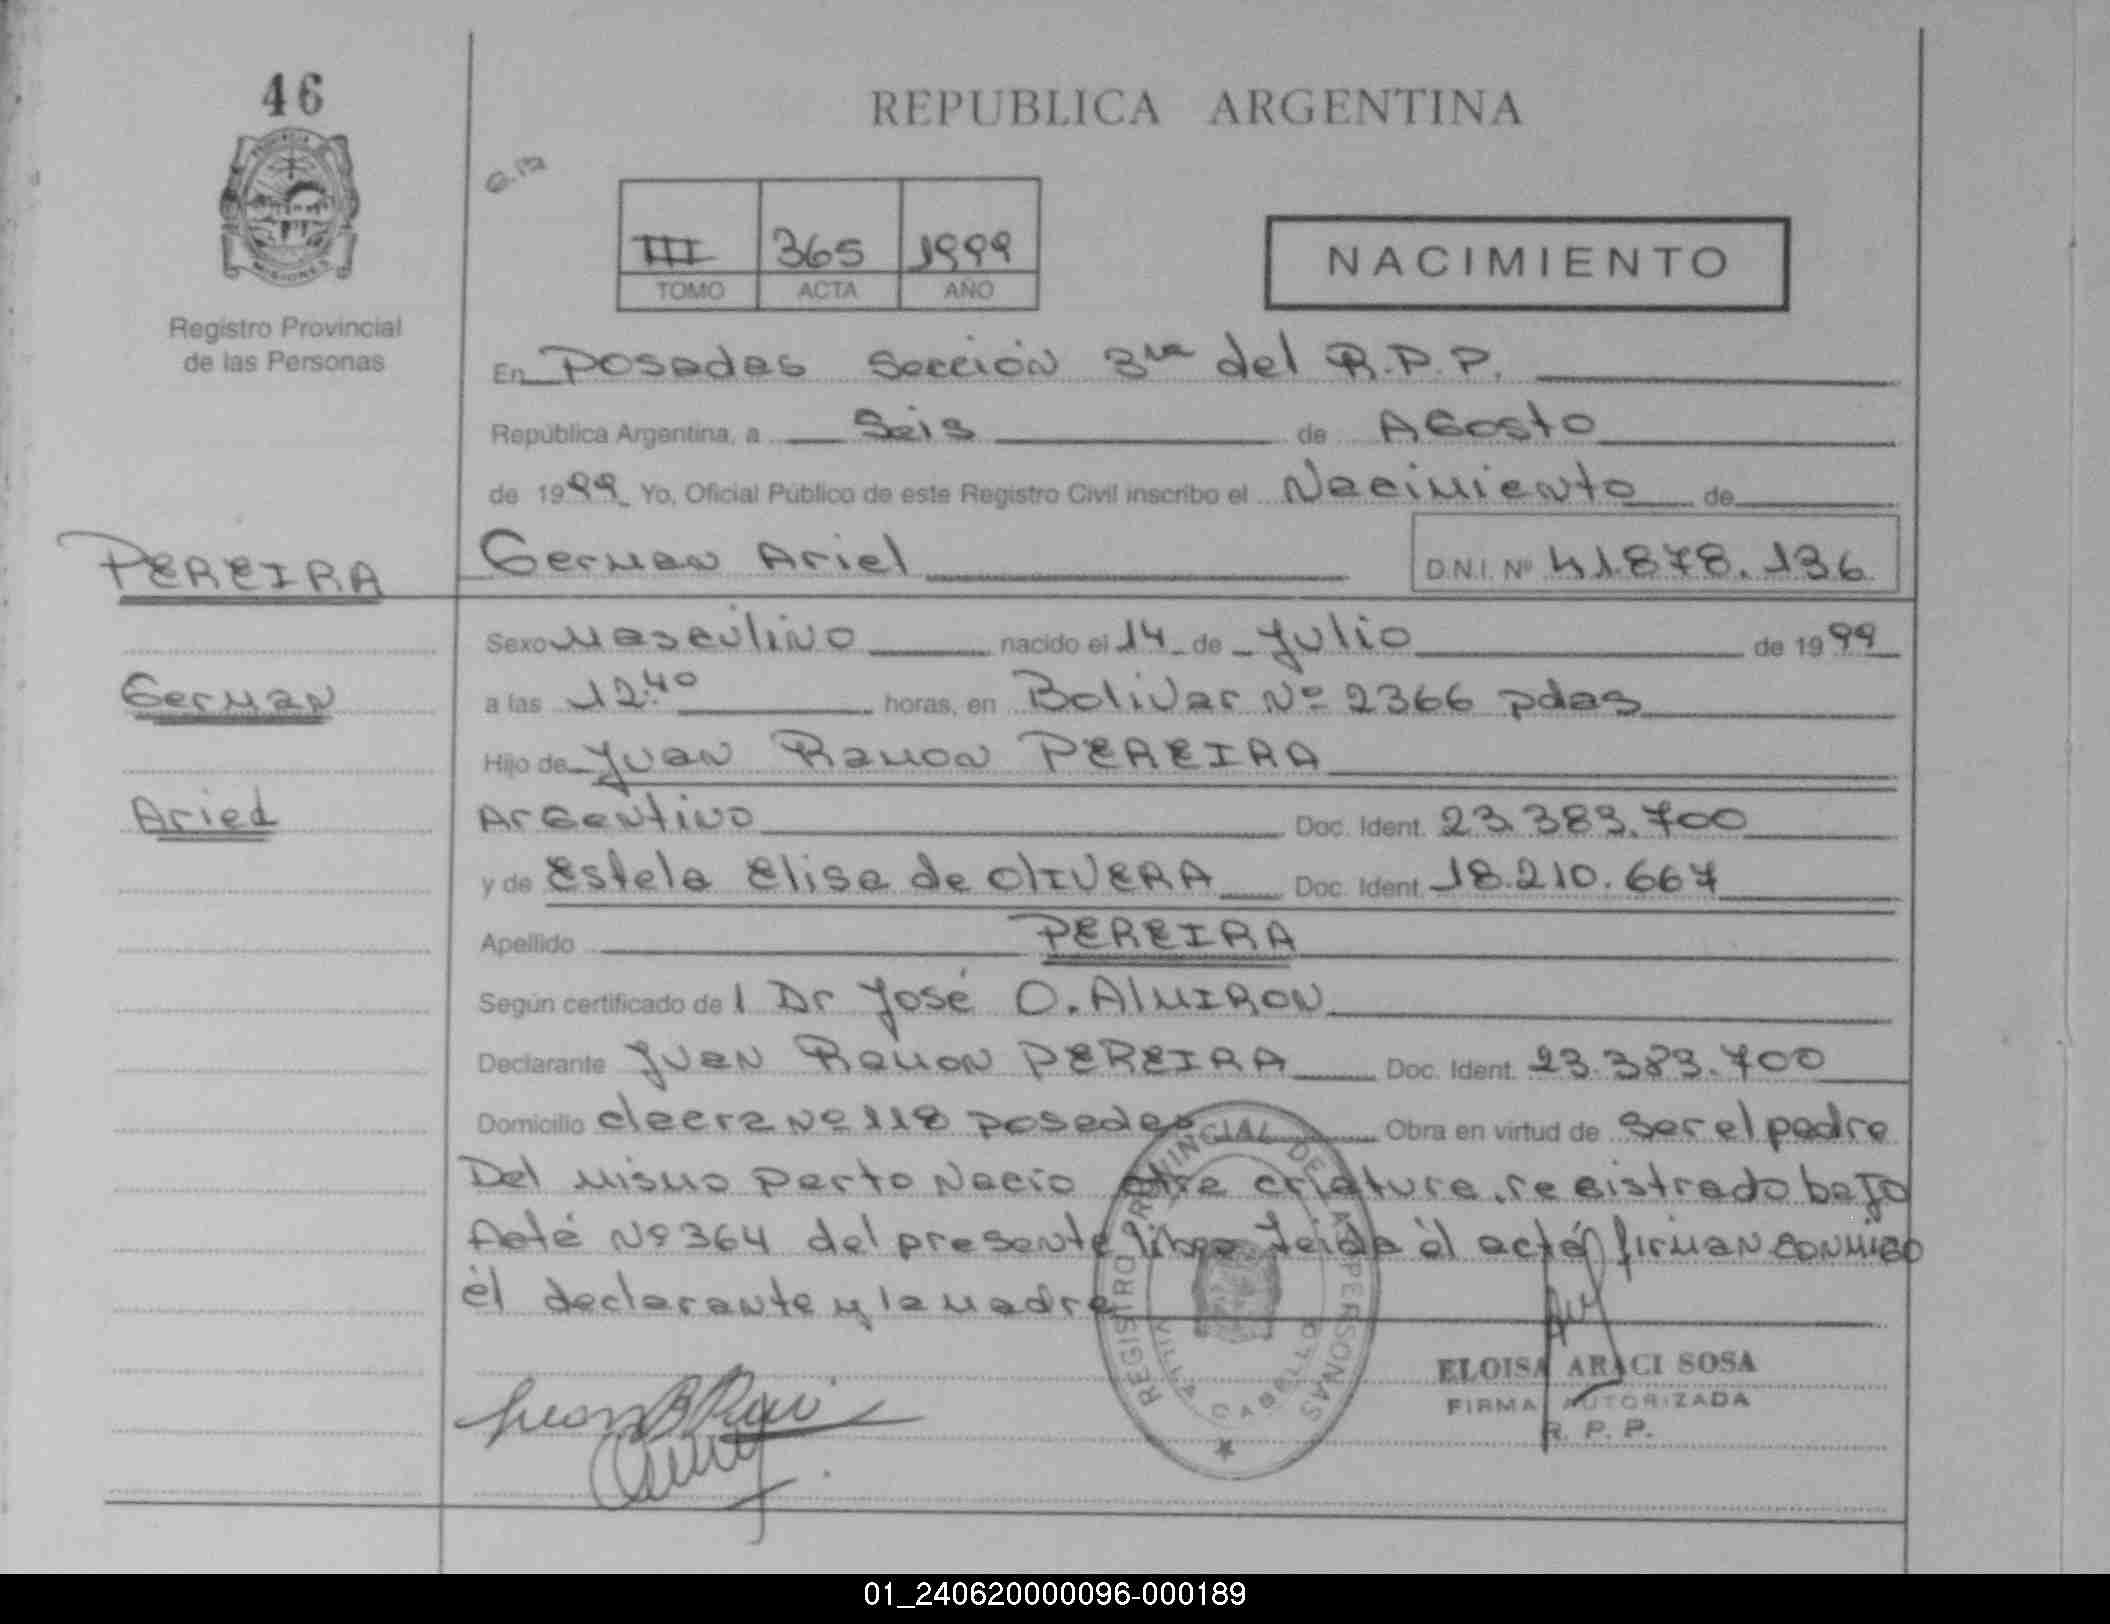 46
REPUBLICA ARGENTINA
III 365 1999
TOMO ACTA AÑO
NACIMIENTO
MISIONES
Registro Provincial
de las Personas
En Posadas Sección 3ra del R.P.P.
República Argentina, a Seis de Agosto
de 1999 Yo, Oficial Público de este Registro Civil inscribo el Nacimiento de
PEREIRA
German Ariel D.N.I. Nº 41.878.136
Sexo Masculino nacido el 14 de Julio de 1999
German
a las 12:40 horas, en Bolivar Nº 2366 pdas
Hijo de Juan Ramon PEREIRA
Ariel
Argentino Doc. Ident. 23.383.700
y de Estela Elisa de OlIVERA Doc. Ident. 18.210.667
Apellido PEREIRA
Según certificado de l Dr José O. AlMIRON
Declarante Juan Ramon PEREIRA Doc. Ident. 23.383.700
Domicilio Nº 118 posadas Obra en virtud de ser el padre
Del mismo parto Nacio otra criatura, registrado bajo
Acta Nº 364 del presente libro leida el acta firman conmigo
él declarante y la madre
REGISTRO PROVINCIAL DE LAS PERSONAS
VILLA CABELLO
ELOISA ARACI SOSA
FIRMA AUTORIZADA
R. P. P.
01_240620000096-000189